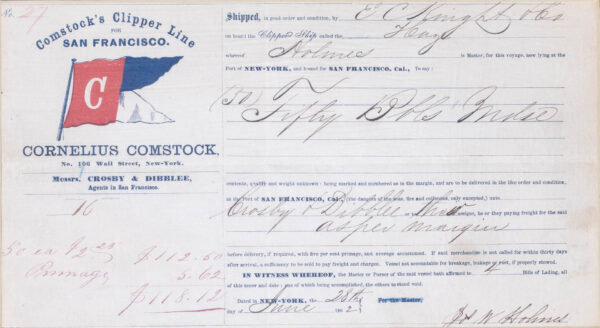 No. 27
Comstock's Clipper Line
FOR
SAN FRANCISCO.
C
CORNELIUS COMSTOCK,
No. 106 Wall Street, New-York.
Messrs. CROSBY & DIBBLEE,
Agents in San Francisco.
16
50 ea $2.25 $112.50
Primage 5.62
$118.12
Shipped, in good order and condition, by E C Knight & Co
on board the Clipper Ship called the
whereof Holmes is Master, for this voyage, now lying at the
Port of NEW-YORK, and bound for SAN FRANCISCO, Cal., To say:
(50) Fifty Bbls
contents, quality and weight unknown; being marked and numbered as in the margin, and are to be delivered in the like order and condition,
at the Port of SAN FRANCISCO, Cal., (the dangers of the seas, fire and collisions, only excepted,) unto
Crosby & Dibblee or their assigns, he or they paying freight for the said
as per margin
before delivery, if required, with five per cent primage, and average accustomed. If said merchandise is not called for within thirty days
after arrival, a sufficiency to be sold to pay freight and charges. Vessel not accountable for breakage, leakage or rust, if properly stowed.
IN WITNESS WHEREOF, the Master or Purser of the said vessel hath affirmed to 4 Bills of Lading, all
of this tenor and date; one of which being accomplished, the others to stand void.
Dated in NEW-YORK, the 28th For the Master,
day of June 2
W Holmes